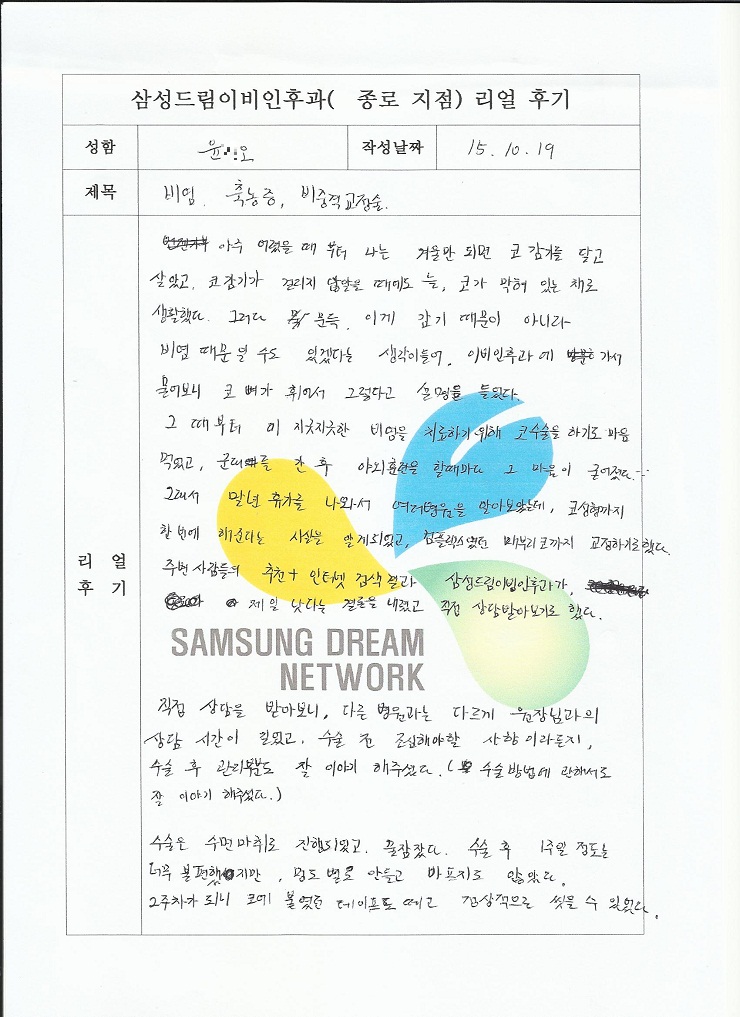 삼성드림이비인후과( 종로 지점) 리얼 후기
성함 윤 오 작성날짜 15. 10. 19
제목 비염. 축농증, 비중격교정술.
리 얼
후 기
아주 어렸을 때 부터 나는 겨울만 되면 코 감기를 달고
살았고, 코감기가 걸리지 않았을 때에도 늘, 코가 막혀 있는 채로
생활했다. 그러다 문득, 이게 감기 때문이 아니라
비염 때문일 수도 있겠다는 생각이들어, 이비인후과에 가서
물어보니 코 뼈가 휘어서 그렇다고 설명을 들었다.
그 때부터 이 지긋지긋한 비염을 치료하기 위해 코수술을 하기로 마음
먹었고, 군대를 간 후 야외훈련을 할때마다 그 마음이 굳어졌다...
그래서 말년 휴가를 나와서 여러병원을 알아보았는데, 코성형까지
한 번에 해준다는 사실을 알게되었고, 컴플렉스였던 매부리코까지 교정하기로했다.
주변 사람들의 추천 + 인터넷 검색 결과 삼성드림이비인후과가,
제일 낫다는 결론을 내렸고 직접 상담받아보기로 했다.
SAMSUNG DREAM
NETWORK
직접 상담을 받아보니, 다른 병원과는 다르게 원장님과의
상담 시간이 길었고, 수술 전 조심해야할 사항이라든지,
수술 후 관리법도 잘 이야기 해주셨다. ( 수술방법에 관해서도
잘 이야기 해주셨다.)
수술은 수면마취로 진행되었고. 꿀잠잤다. 수술 후 1주일 정도는
너무 불편했지만, 멍도 별로 안들고 아프지도 않았다.
2주차가 되니 코에 붙였던 테이프도 떼고 정상적으로 씻을 수 있었다.